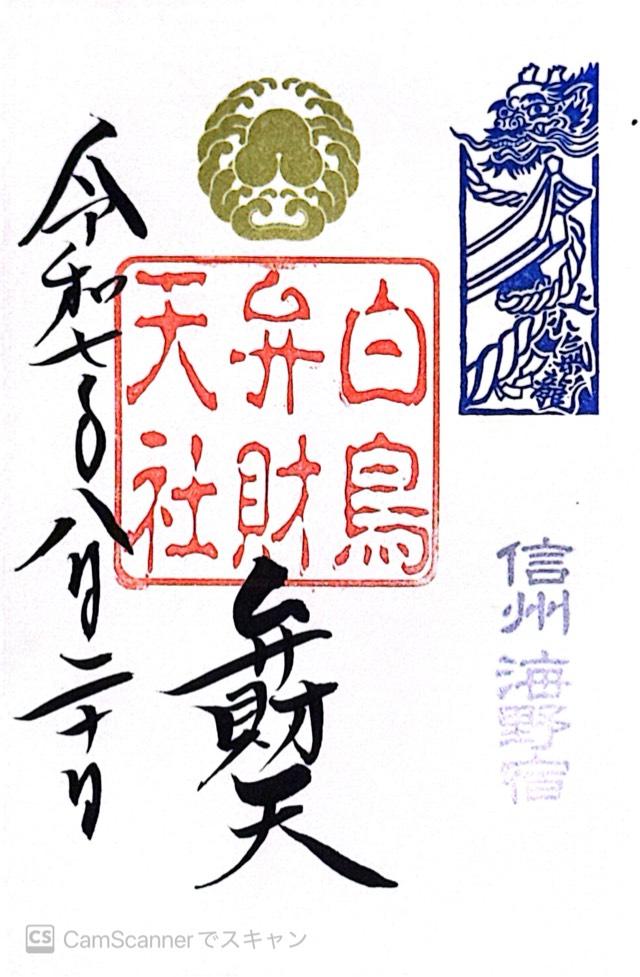 上小氣龍
信州 海野宿
白鳥
弁財
天社
弁財天
令和七年八月二十日
CS CamScannerでスキャン